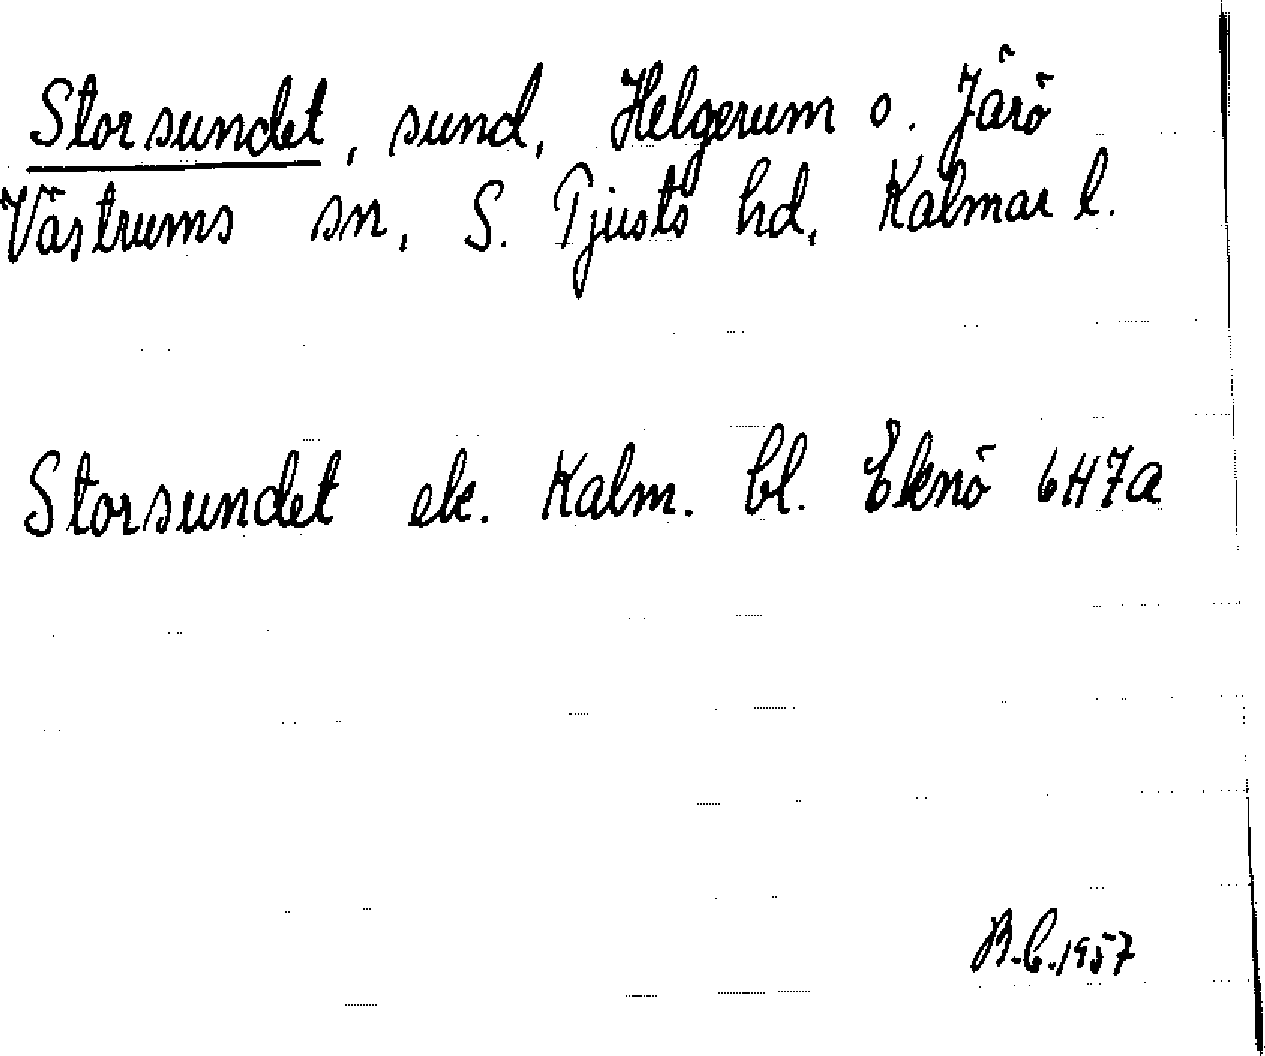 Storsundet, sund, Helgerum o. Järö
Västrums sn, S. Tjusts hd, Kalmar l.
Storsundet ek. Kalm. bl. Eknö 6H7a
B.C.1957